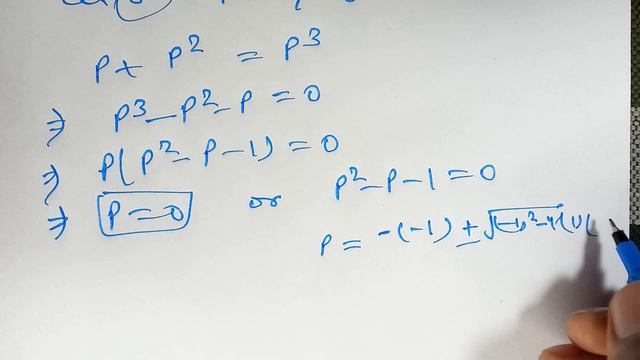 P + P² = P³
⇒ P³ - P² - P = 0
⇒ P(P² - P - 1) = 0
⇒ P = 0 or P² - P - 1 = 0
P = -(-1) ± √(-1)² - 4(1)(